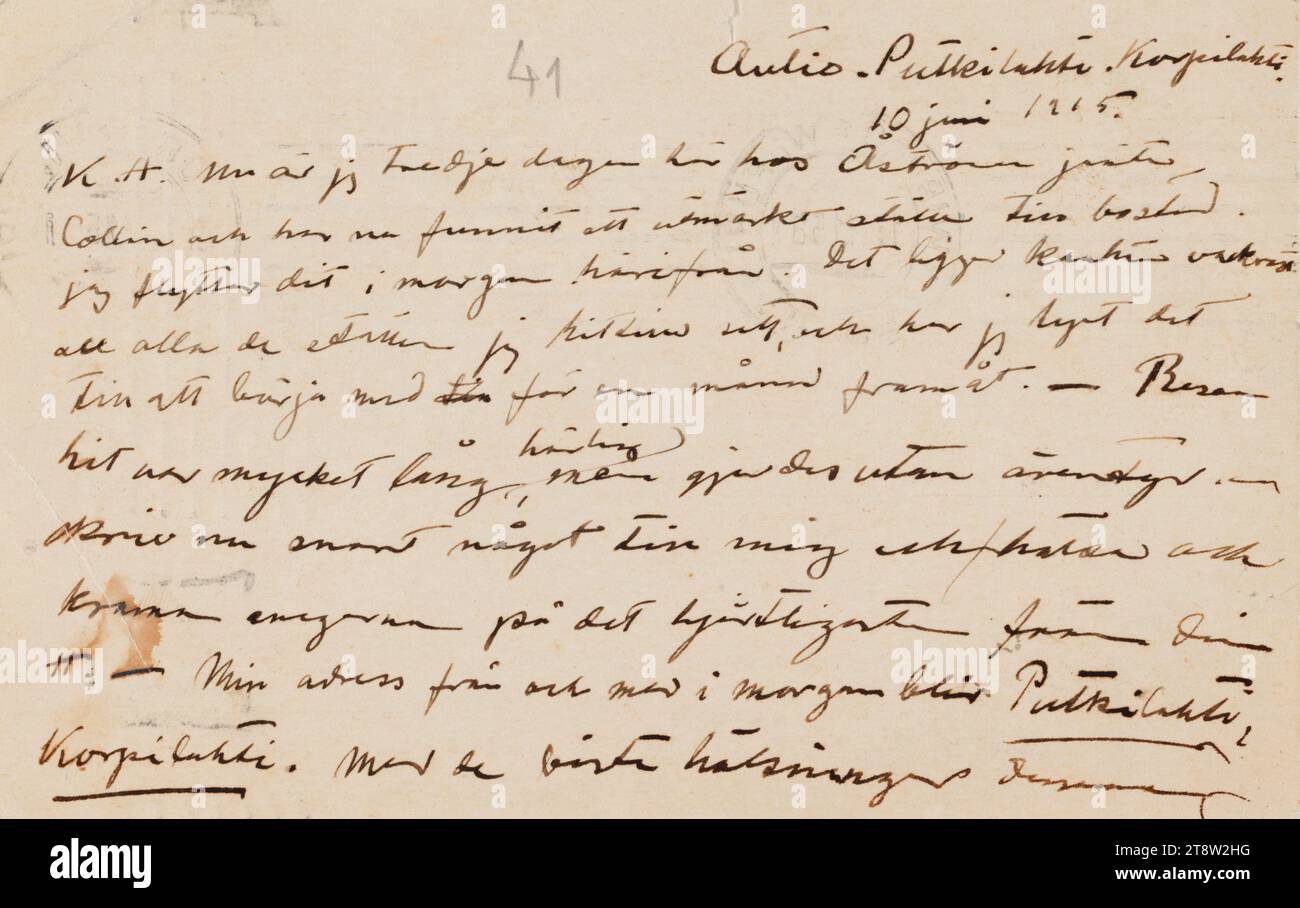 41
Autio. Putkilahti. Korpilahti.
10 juni 1915.
K. H. Nu är jag tredje dagen här hos Åström jämte
Collin och har nu funnit ett utmärkt ställe till bostad.
jag flyttar dit i morgon härifrån. Det ligger kanhän vackrast
av alla de ställen jag hittills sett, och har jag hyrt det
till att börja med för en månad framåt. — Resan
hit var mycket lång, härlig men gjordes utan äventyr. —
skriv nu snart något till mig och hälsa och
krama ungerna på det hjärtligaste från din
H — Min adress från och med i morgon blir Putkilahti,
Korpilahti. Med de bästa hälsningar densamme
alamy
Image ID: 2T8W2HG
www.alamy.com